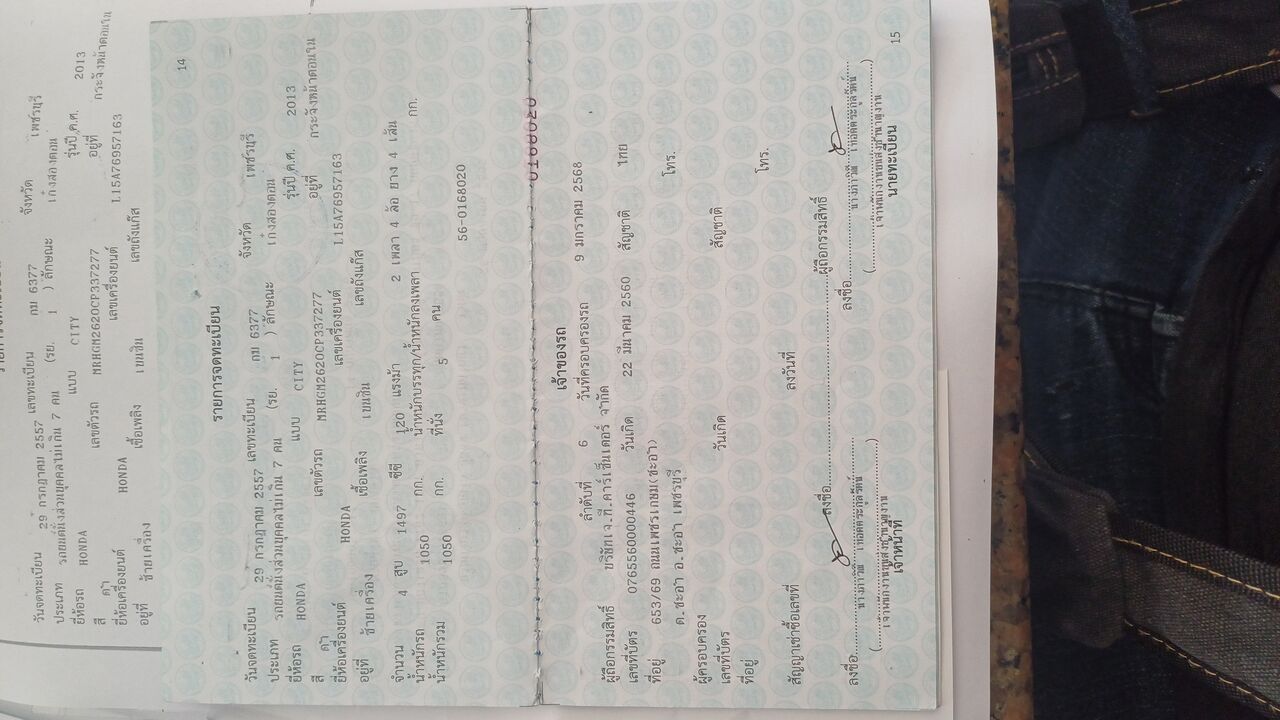 วันจดทะเบียน 29 กรกฎาคม 2557 เลขทะเบียน กม 6377 จังหวัด เพชรบุรี
ประเภท รถยนต์นั่งส่วนบุคคลไม่เกิน 7 คน (รย. 1 ) ลักษณะ เก๋งสองตอน
ยี่ห้อรถ HONDA แบบ CITY รุ่นปี ค.ศ. 2013
สี ดำ เลขตัวรถ MRHGM2620CP337277 อยู่ที่ กระจังหน้าตอนใน
ยี่ห้อเครื่องยนต์ HONDA เลขเครื่องยนต์ L15A76957163
อยู่ที่ ซ้ายเครื่อง เชื้อเพลิง เบนซิน เลขถังแก๊ส
14
รายการจดทะเบียน
วันจดทะเบียน 29 กรกฎาคม 2557 เลขทะเบียน กม 6377 จังหวัด เพชรบุรี
ประเภท รถยนต์นั่งส่วนบุคคลไม่เกิน 7 คน (รย. 1 ) ลักษณะ เก๋งสองตอน
ยี่ห้อรถ HONDA แบบ CITY รุ่นปี ค.ศ. 2013
สี ดำ เลขตัวรถ MRHGM2620CP337277 อยู่ที่ กระจังหน้าตอนใน
ยี่ห้อเครื่องยนต์ HONDA เลขเครื่องยนต์ L15A76957163
อยู่ที่ ซ้ายเครื่อง เชื้อเพลิง เบนซิน เลขถังแก๊ส
จำนวน 4 สูบ 1497 ซีซี 120 แรงม้า 2 เพลา 4 ล้อ ยาง 4 เส้น
น้ำหนักรถ 1050 กก. น้ำหนักบรรทุก/น้ำหนักลงเพลา กก.
น้ำหนักรวม 1050 กก. ที่นั่ง 5 คน
56-0168020
0168020
เจ้าของรถ
ลำดับที่ 6 วันที่ครอบครองรถ 9 มกราคม 2568
ผู้ถือกรรมสิทธิ์ บริษัทเจ.ที.คาร์เซ็นเตอร์ จำกัด
เลขที่บัตร 0765560000446 วันเกิด 22 มีนาคม 2560 สัญชาติ ไทย
ที่อยู่ 653/69 ถนนเพชรเกษม(ชะอำ) โทร.
ต.ชะอำ อ.ชะอำ เพชรบุรี
ผู้ครอบครอง
เลขที่บัตร วันเกิด สัญชาติ
ที่อยู่ โทร.
สัญญาเช่าซื้อเลขที่ ลงวันที่
ลงชื่อ ผู้ถือกรรมสิทธิ์
ลงชื่อ ลงชื่อ
เจ้าหน้าที่ นายทะเบียน
15